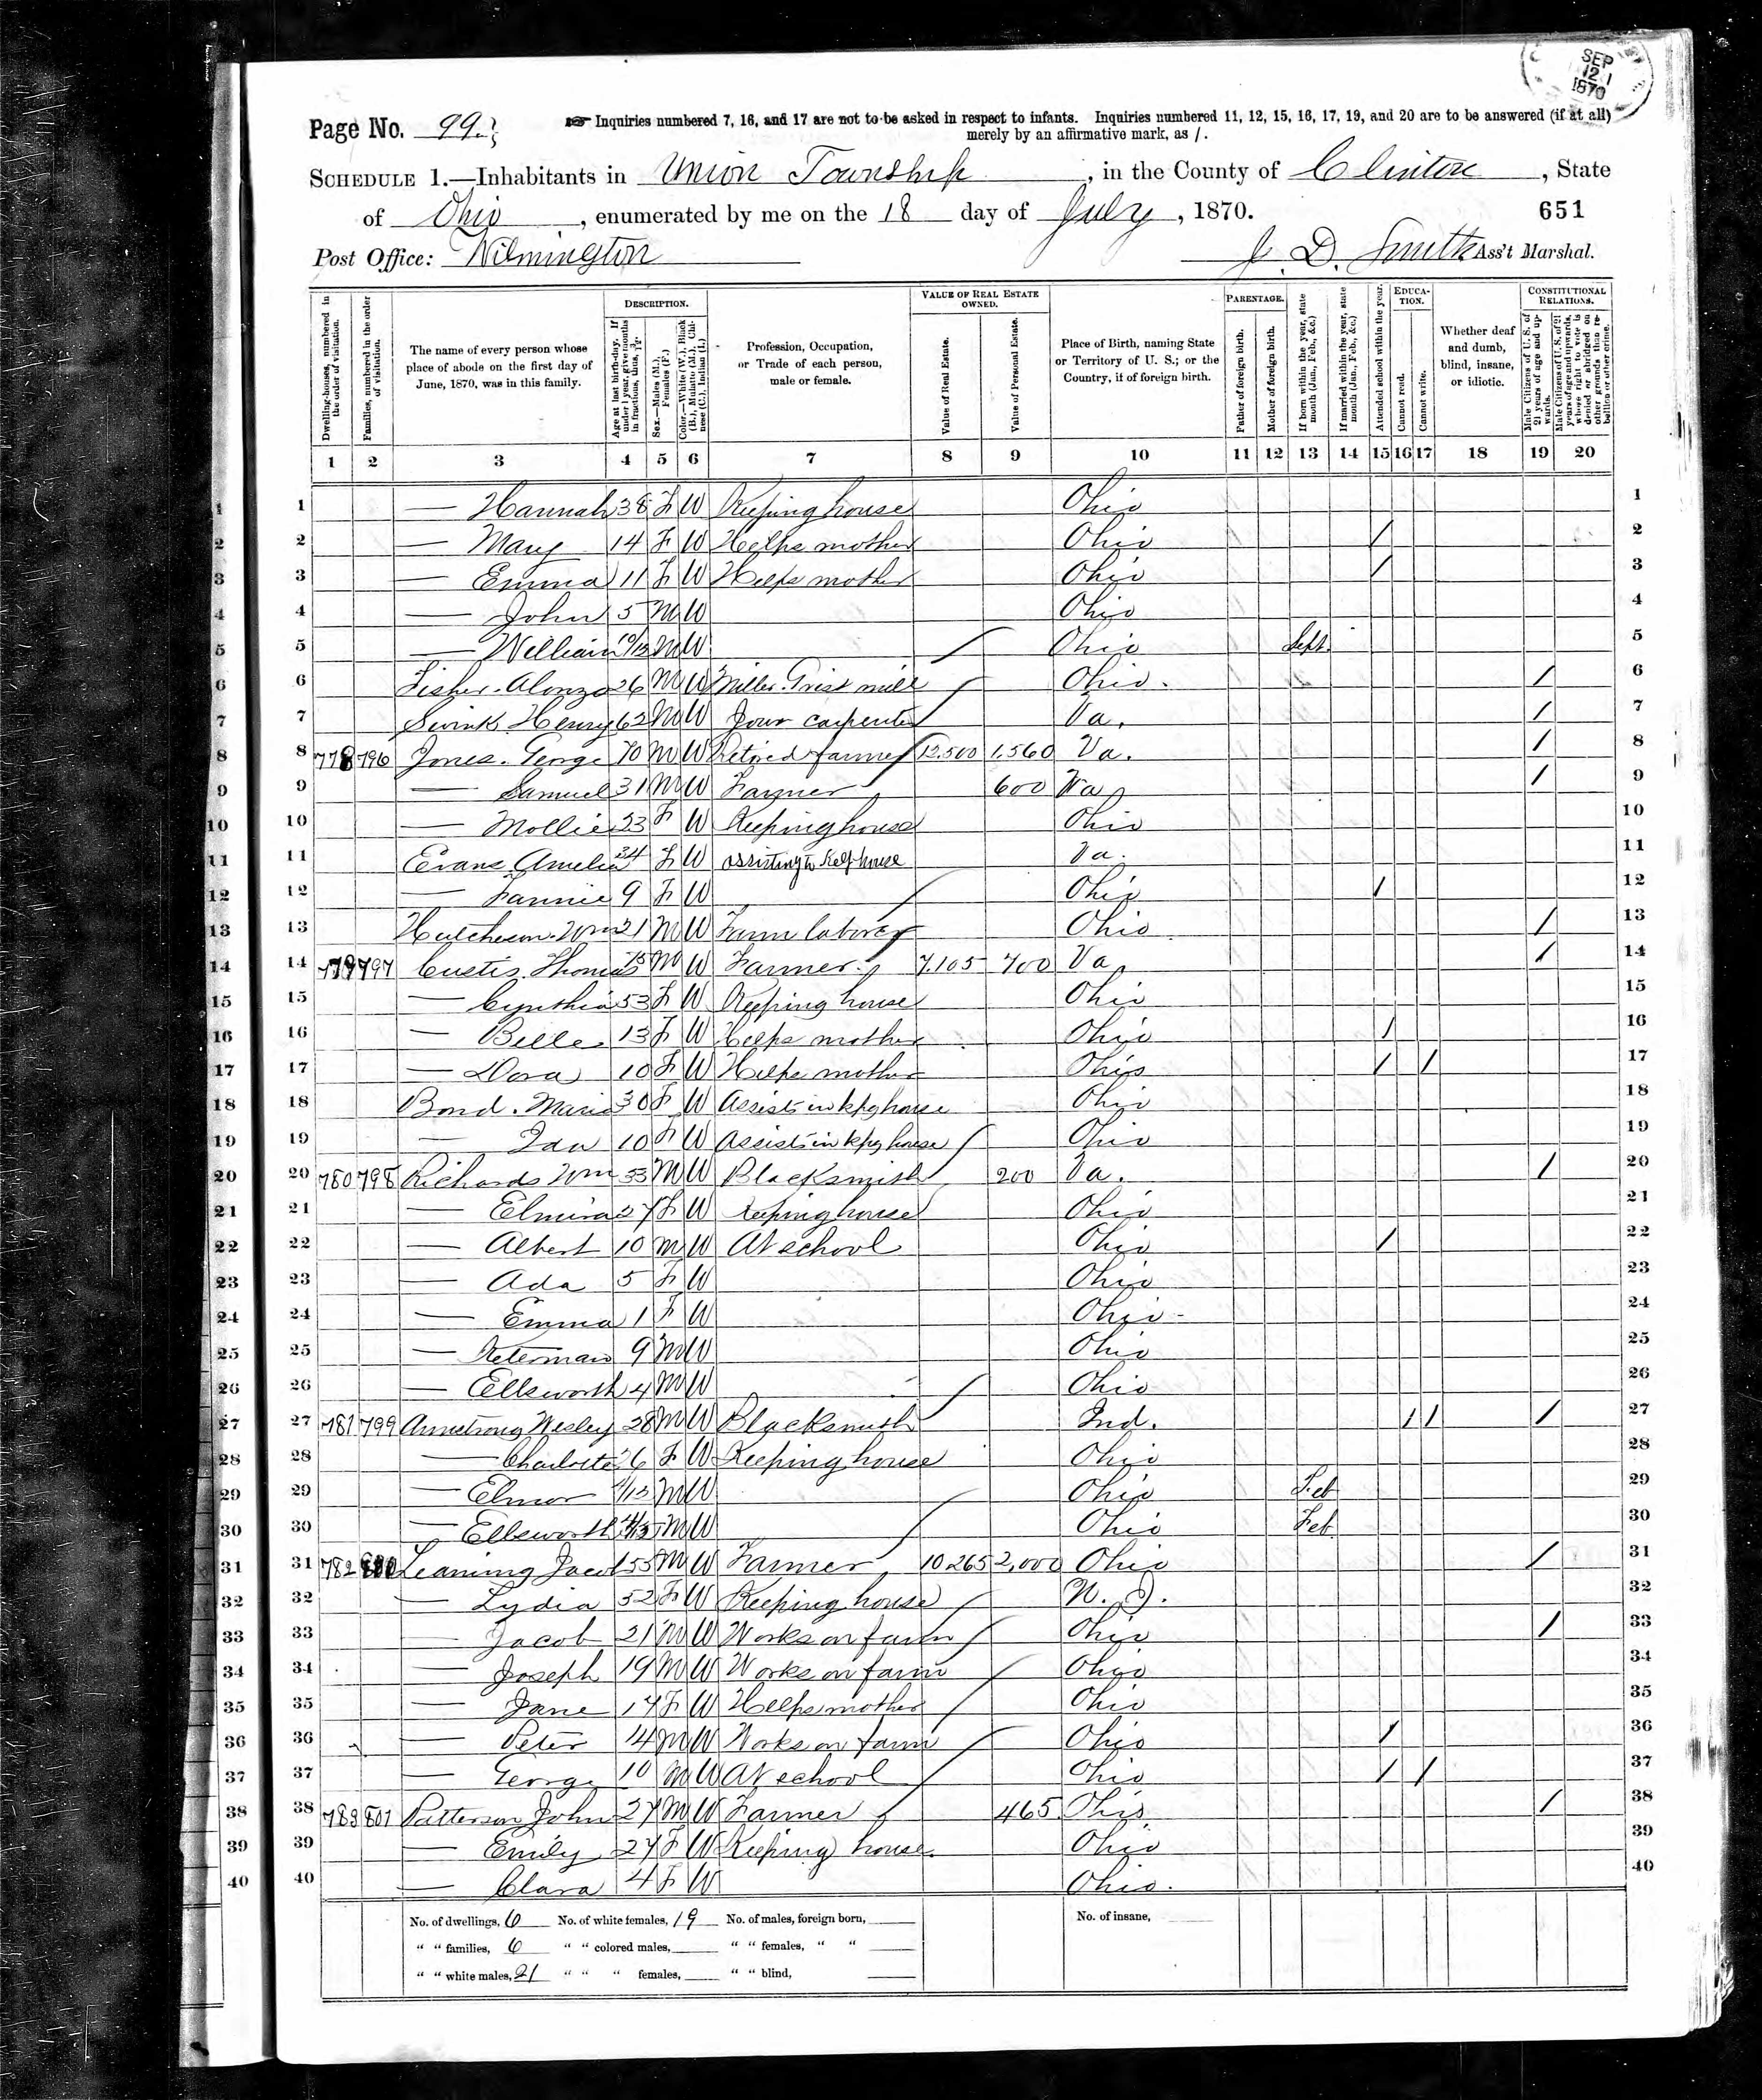 SEP 12 1870
Page No. 99
Inquiries numbered 7, 16, and 17 are not to be asked in respect to infants. Inquiries numbered 11, 12, 15, 16, 17, 19, and 20 are to be answered (if at all)
merely by an affirmative mark, as /.
SCHEDULE 1.—Inhabitants in Union Township, in the County of Clinton, State
of Ohio, enumerated by me on the 18 day of July, 1870.
651
Post Office: Wilmington
D. Smith Ass't Marshal.
Dwelling-houses, numbered in the order of visitation.
Families, numbered in the order of visitation.
The name of every person whose place of abode on the first day of June, 1870, was in this family.
DESCRIPTION.
Age at last birth-day. If under 1 year, give months in fractions, thus, 3/12.
Sex.—Males (M.), Females (F.)
Color.—White (W.), Black (B.), Mulatto (M.), Chinese (C.), Indian (I.)
Profession, Occupation, or Trade of each person, male or female.
VALUE OF REAL ESTATE OWNED.
Value of Real Estate.
Value of Personal Estate.
Place of Birth, naming State or Territory of U. S.; or the Country, if of foreign birth.
PARENTAGE.
Father of foreign birth.
Mother of foreign birth.
If born within the year, state month (Jan., Feb., &c.)
If married within the year, state month (Jan., Feb., &c.)
EDUCATION.
Attended school within the year.
Cannot read.
Cannot write.
Whether deaf and dumb, blind, insane, or idiotic.
CONSTITUTIONAL RELATIONS.
Male Citizens of U. S. of 21 years of age and upwards.
Male Citizens of U. S. of 21 years of age and upwards, whose right to vote is denied or abridged on other grounds than rebellion or other crime.
1 2 3 4 5 6 7 8 9 10 11 12 13 14 15 16 17 18 19 20
1 — Hannah 38 F W Keeping house Ohio 1
2 — Mary 14 F W Helps mother Ohio / 2
3 — Emma 11 F W Helps mother Ohio / 3
4 — John 5 M W Ohio 4
5 — William 10/12 M W Ohio Sept. 5
6 Fisher. Alonzo 26 M W Miller Grist mill Ohio. / 6
7 Swink Henry 62 M W Jour carpenter Va. / 7
8 778 796 Jones. George 70 M W Retired farmer 12.500 1.560 Va. / 8
9 — Samuel 31 M W Farmer 600 Va / 9
10 — Mollie 23 F W Keeping house Ohio 10
11 Evans Amelia 34 F W assisting to keep house Va. 11
12 — Fannie 9 F W Ohio / 12
13 Hutcheson. Wm 21 M W Farm laborer Ohio / 13
14 779 797 Custis Thomas 75 M W Farmer. 7.105 700 Va / 14
15 — Cynthia 53 F W Keeping house Ohio 15
16 — Belle 13 F W Helps mother Ohio / 16
17 — Dora 10 F W Helps mother Ohio / / 17
18 Bond. Maria 30 F W Assists in kpg house Ohio 18
19 — Ida 10 F W Assists in kpg house Ohio 19
20 780 798 Richards Wm 33 M W Blacksmith 200 Va. / 20
21 — Elmira 27 F W Keeping house Ohio 21
22 — Albert 10 M W At school Ohio / 22
23 — Ada 5 F W Ohio 23
24 — Emma 1 F W Ohio 24
25 — 9 M W Ohio 25
26 — Ellsworth 4 M W Ohio 26
27 781 799 Armstrong Wesley 28 M W Blacksmith Ind. / / / 27
28 — Charlotte 26 F W Keeping house Ohio 28
29 — Elmor M W Ohio Feb 29
30 — Ellsworth M W Ohio Feb. 30
31 782 800 Leaming Jacob 55 M W Farmer 10265 2,000 Ohio / 31
32 — Lydia 52 F W Keeping house N. J. 32
33 — Jacob 21 M W Works on farm Ohio / 33
34 — Joseph 19 M W Works on farm Ohio 34
35 — Jane 17 F W Helps mother Ohio 35
36 — Peter 14 M W Works on farm Ohio / 36
37 — George 10 M W At school Ohio / / 37
38 783 801 Patterson John 27 M W Farmer 465 Ohio / 38
39 — Emily 27 F W Keeping house. Ohio 39
40 — Clara 4 F W Ohio. 40
No. of dwellings, 6 No. of white females, 19 No. of males, foreign born, No. of insane,
" " families, 6 " " colored males, " " females, " "
" " white males, 21 " " " females, " " blind,